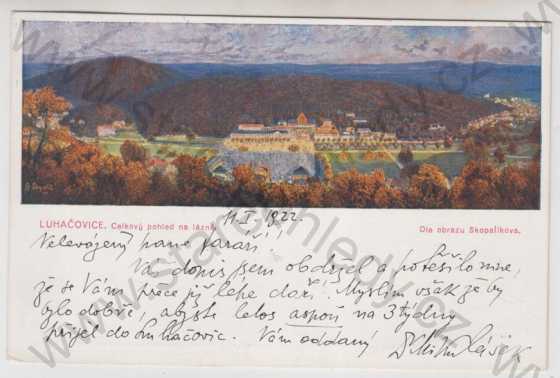 LUHAČOVICE. Celkový pohled na lázně.
Dle obrazu Skopalíkova.
11. I. 1922.
Velevážený pane faráři!
Váš dopis jsem obdržel a potěšilo mne,
že se Vám přece již lépe daří. Myslím však že by
bylo dobré, abyste letos aspoň na 3 týdny
přijel do Luhačovic. Vám oddaný
www.starepohledy.cz